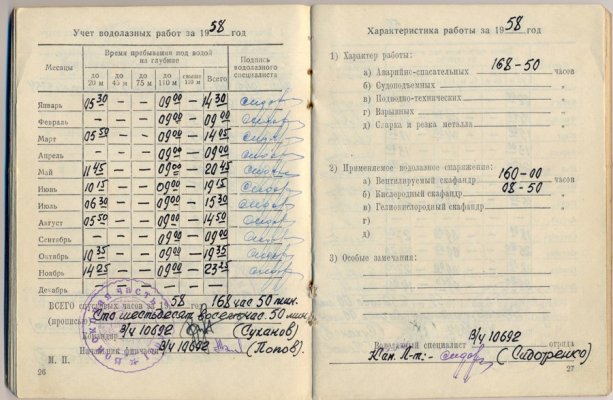 Учет водолазных работ за 1958 год
Месяцы
Время пребывания под водой на глубине
Подпись водолазного специалиста
до 20 м до 45 м до 75 м до 110 м свыше 110 м Всего
Январь 05 30 — — 09 00 — 14 30
Февраль — — — 09 00 — 09 00
Март 05 50 — — 09 00 — 14 05
Апрель — — — 09 00 — 09 00
Май 11 45 — — 09 00 — 20 45
Июнь 10 15 — — 09 00 — 19 15
Июль 06 30 — — 09 00 — 15 30
Август 05 50 — — 09 00 — 14 50
Сентябрь — — — 09 00 — 09 00
Октябрь 10 35 — — 09 00 — 19 35
Ноябрь 14 25 — — 09 00 — 23 25
Декабрь — — — — — —
ВСЕГО спусковых часов за 1958 168 час 50 мин.
(прописью) Сто шестьдесят восемь час. 50 мин.
Командир в/ч 10692 (Суханов)
Начальник финчасти в/ч 10692 (Попов).
М. П.
26
Характеристика работы за 1958 год
1) Характер работы:
а) Аварийно-спасательных 168-50 часов
б) Судоподъемных "
в) Подводно-технических "
г) Взрывных "
д) Сварка и резка металла "
2) Применяемое водолазное снаряжение:
а) Вентилируемый скафандр 160-00 часов
б) Кислородный скафандр 08-50 "
в) Гелиокислородный скафандр "
г)
д)
3) Особые замечания:
Водолазный специалист в/ч 10692 отряда
Кап. Л-т:- (Сидоренко)
27